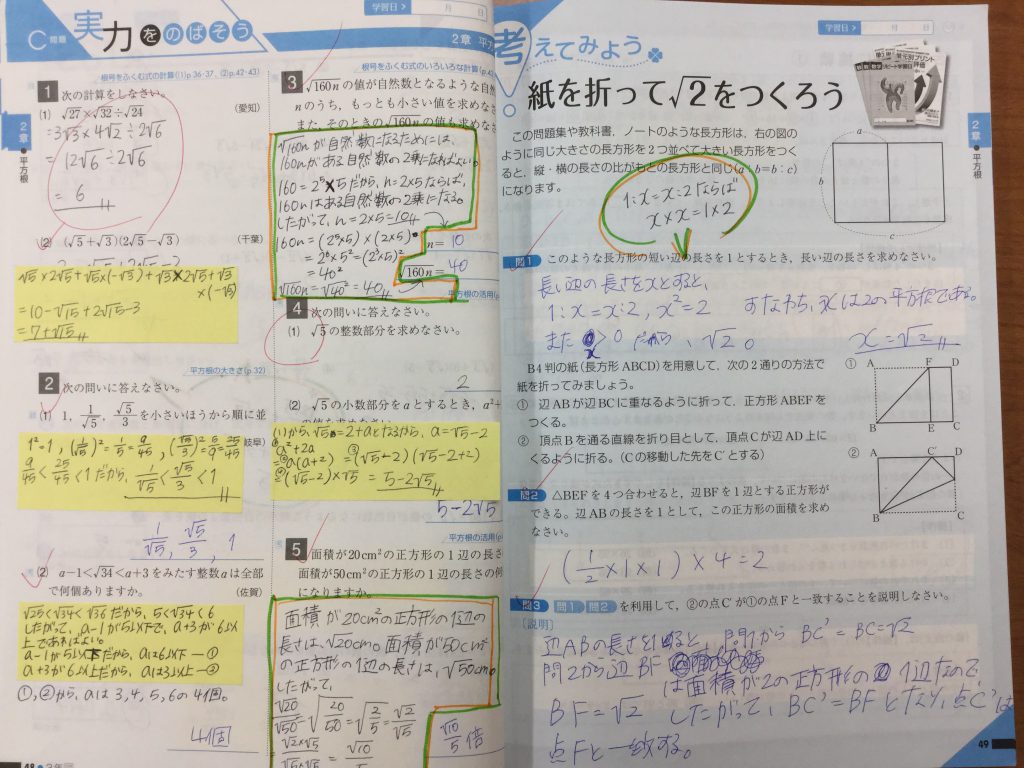 C問題 実力をのばそう
学習日 月 日
2章 平方
2章 ●平方根
根号をふくむ式の計算 (1)p.36-37, (2)p.42-43
1 次の計算をしなさい。
(1) √27×√32÷√24 (愛知)
=3√3×4√2÷2√6
=12√6÷2√6
=6
(2) (√5+√3)(2√5−√3) (千葉)
√5×2√5+√5×(-√3)+√3×2√5+√3
×(-√3)
=10-√15+2√15-3
=7+√15
平方根の大きさ(p.32)
2 次の問いに答えなさい。
(1) 1, 1/√5, √5/3 を小さいほうから順に並
1²=1, (1/√5)²=1/5=9/45, (√5/3)²=5/9=25/45
9/45<25/45<1だから, 1/√5<√5/3<1
1/√5, √5/3, 1
(2) a−1<√34<a+3をみたす整数aは全部
で何個ありますか。 (佐賀)
√25<√34<√36だから, 5<√34<6
したがって, a-1が5以下で, a+3が6以
上であればよい。
a-1が5以下だから, aは6以下―①
a+3が6以上だから, aは3以上―②
①,②から, aは3,4,5,6の4個。
4個
48 ●3年
根号をふくむ式のいろいろな計算(p.4
3 √160nの値が自然数となるような自然
nのうち, もっとも小さい値を求めなさ
また, そのときの√160nの値も求めな
√160nが自然数になるためには,
160nがある自然数の2乗になればよい。
160=2⁵×5だから, n=2×5ならば,
160nはある自然数の2乗になる。
したがって, n=2×5=10
160n=(2⁵×5)×(2×5)
n= 10
=2⁶×5²=(2³×5)²
=40²
√160n= 40
√160n=√40²=40
平方根の活用(p
4 次の問いに答えなさい。
(1) √5の整数部分を求めなさい。
2
(2) √5の小数部分をaとするとき, a²+
(1)から, √5=2+aとなるから, a=√5-2
a²+2a
=a(a+2) =(√5-2)(√5-2+2)
=(√5-2)×√5 =5-2√5
5-2√5
平方根の活用(
5 面積が20cm²の正方形の1辺の長さ
面積が50cm²の正方形の1辺の長さの何
になりますか。
面積が20cm²の正方形の1辺の
長さは, √20cm。面積が50cm²
の正方形の1辺の長さは, √50cm。
したがって,
√20/√50=√(20/50)=√(2/5)=√2/√5
√2×√5/√5×√5=√10/5
√10/5 倍
考えてみよう!
学習日 月 日
紙を折って√2をつくろう
この問題集や教科書, ノートのような長方形は, 右の図の
ように同じ大きさの長方形を2つ並べて大きい長方形をつく
ると, 縦・横の長さの比がもとの長方形と同じ(a:b=b:c)
になります。
a
b
c
1:x=x:2ならば
x×x=1×2
問1 このような長方形の短い辺の長さを1とするとき, 長い辺の長さを求めなさい。
長い辺の長さをxとすると,
1:x=x:2, x²=2 すなわち, xは2の平方根である。
また x>0 だから, √2。 x=√2
B4判の紙(長方形ABCD)を用意して, 次の2通りの方法で
紙を折ってみましょう。
① 辺ABが辺BCに重なるように折って, 正方形ABEFを
つくる。
② 頂点Bを通る直線を折り目として, 頂点Cが辺AD上に
くるように折る。(Cの移動した先をC′とする)
① A F D
B E C
② A C′ D
B C
問2 △BEFを4つ合わせると, 辺BFを1辺とする正方形が
できる。辺ABの長さを1として, この正方形の面積を求め
なさい。
(1/2×1×1)×4=2
問3 問1 問2 を利用して, ②の点C′が①の点Fと一致することを説明しなさい。
[説明]
辺ABの長さを1とすると, 問1から BC′=BC=√2
問2から辺BF
は面積が2の正方形の1辺なので
BF=√2 したがって, BC′=BFとなり, 点C′は
点Fと一致する。
2章 ●平方根
49